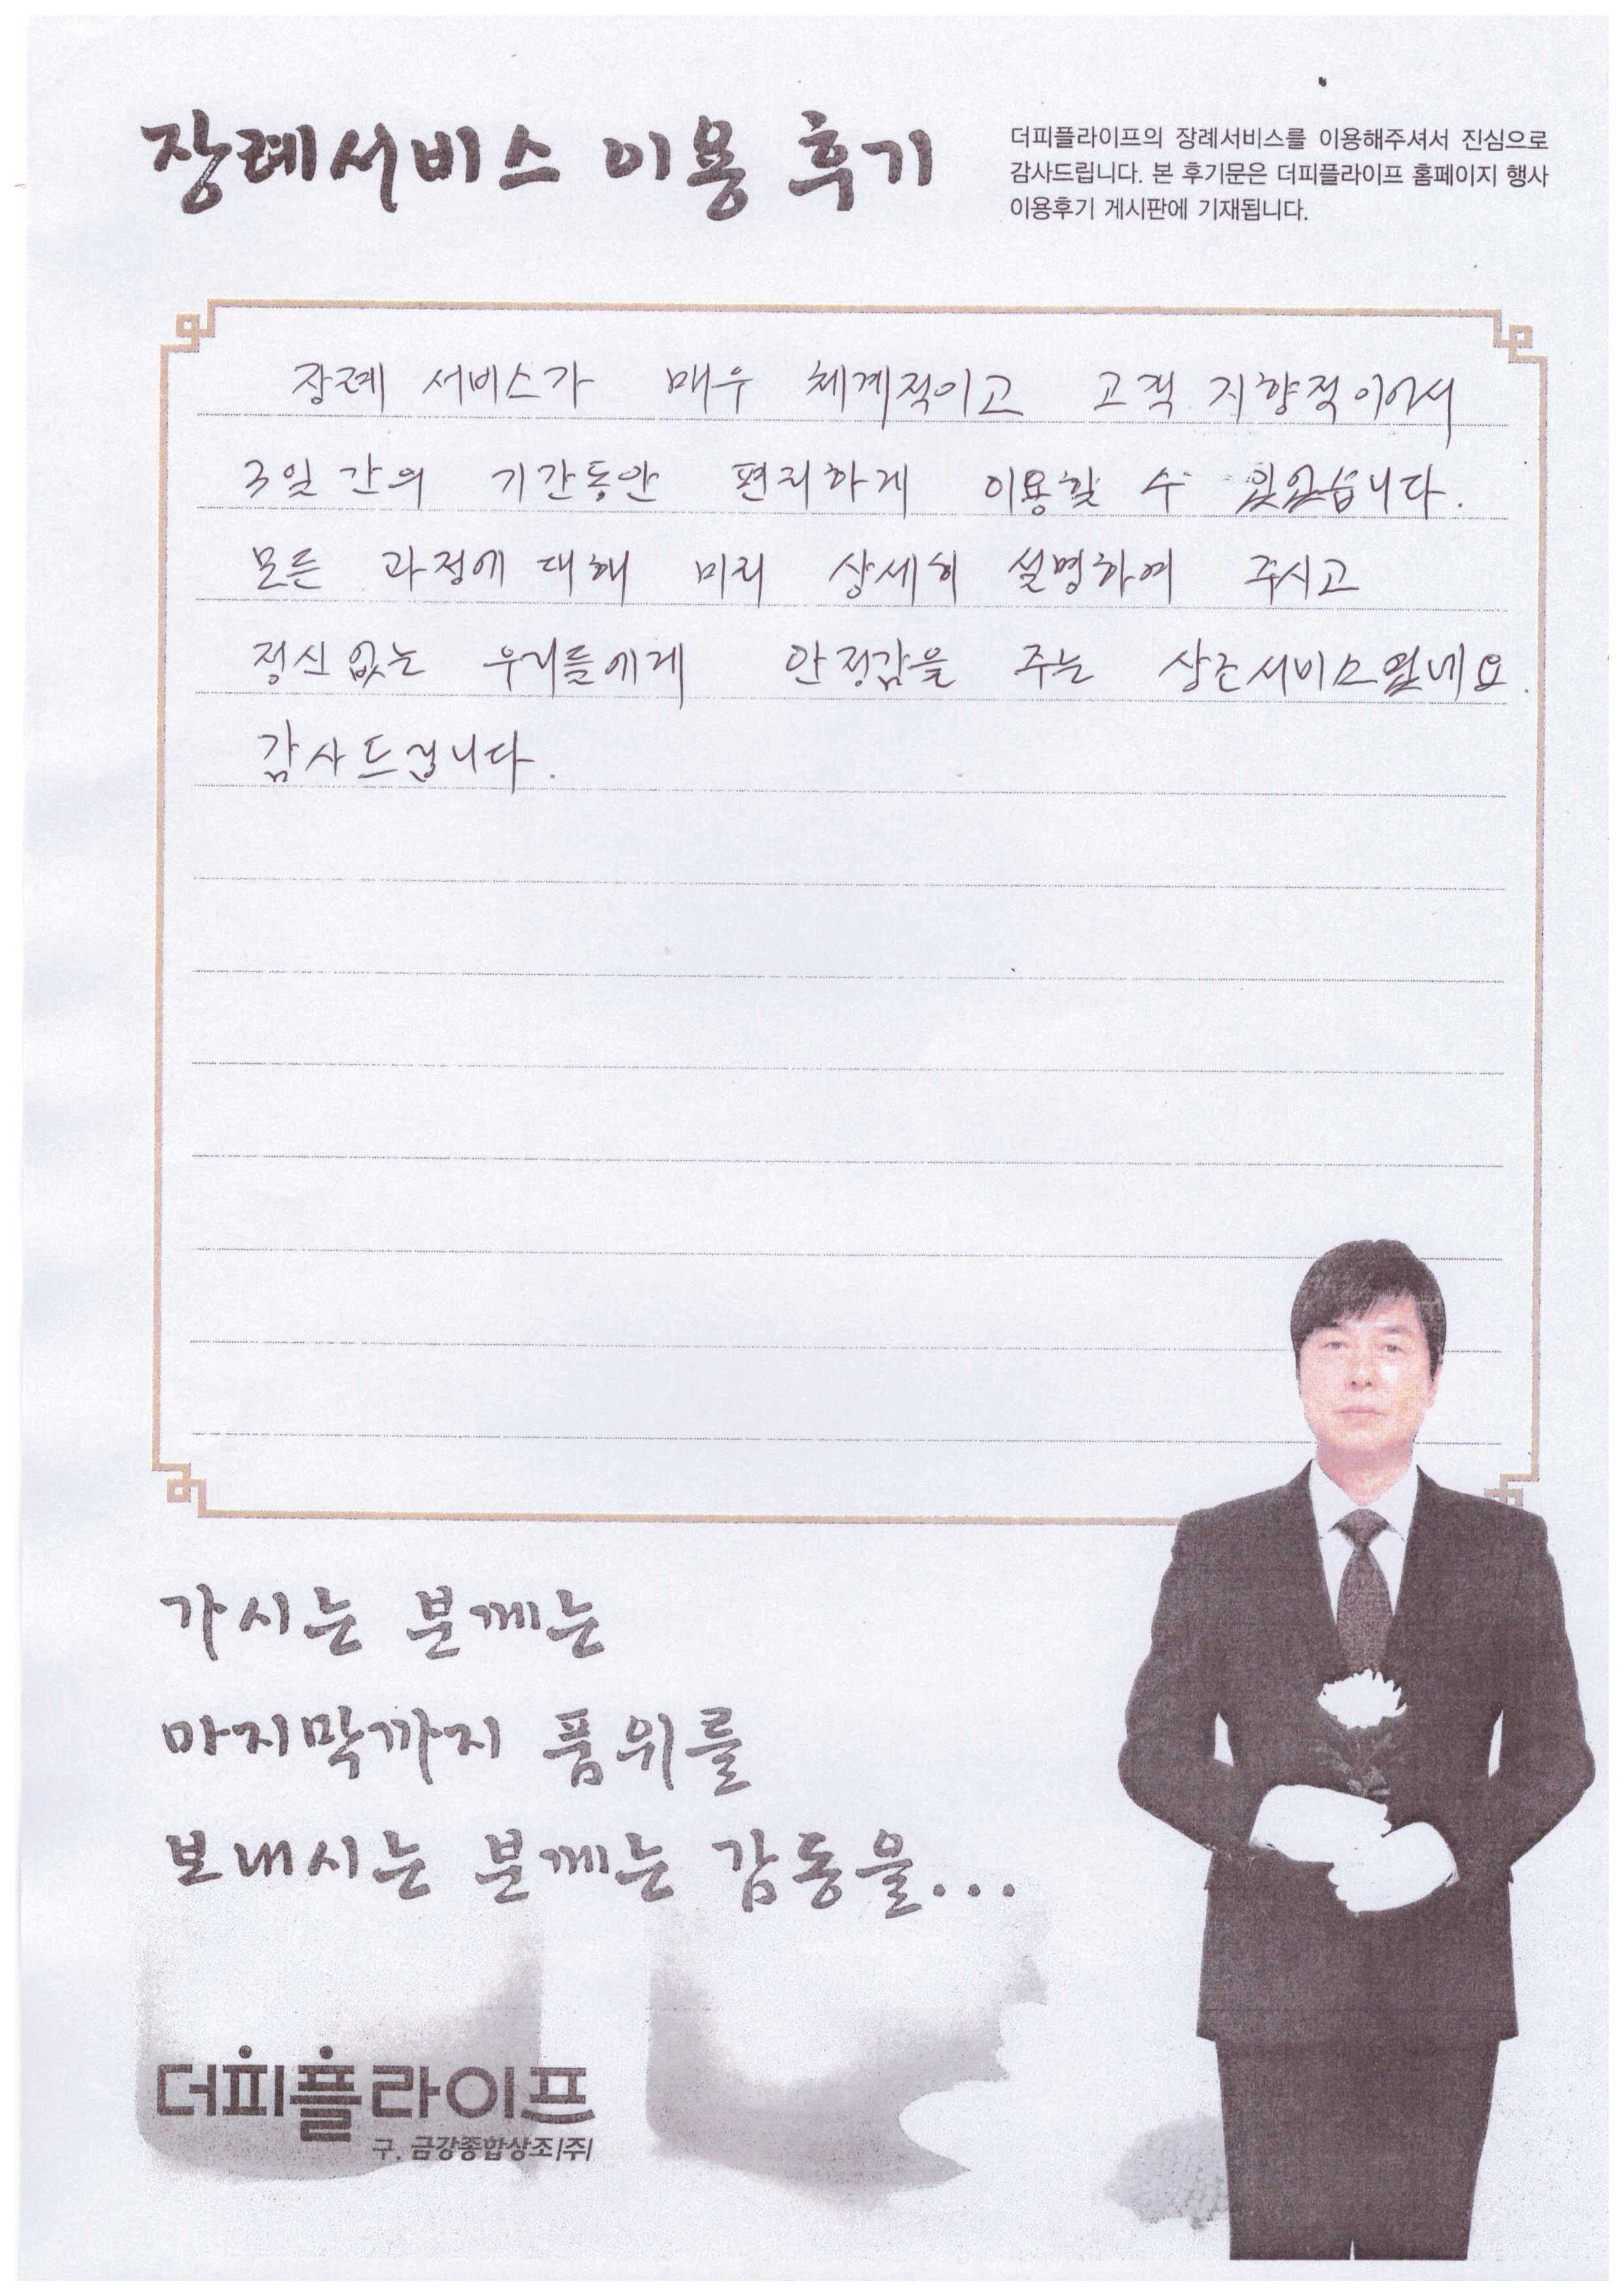 장례서비스 이용 후기
더피플라이프의 장례서비스를 이용해주셔서 진심으로
감사드립니다. 본 후기문은 더피플라이프 홈페이지 행사
이용후기 게시판에 기재됩니다.
장례 서비스가 매우 체계적이고 고객 지향적이어서
3일 간의 기간동안 편리하게 이용할 수 있었습니다.
모든 과정에 대해 미리 상세히 설명하여 주시고
정신없는 우리들에게 안정감을 주는 상조서비스였네요.
감사드립니다.
가시는 분께는
마지막까지 품위를
보내시는 분께는 감동을...
더피플라이프
구. 금강종합상조(주)